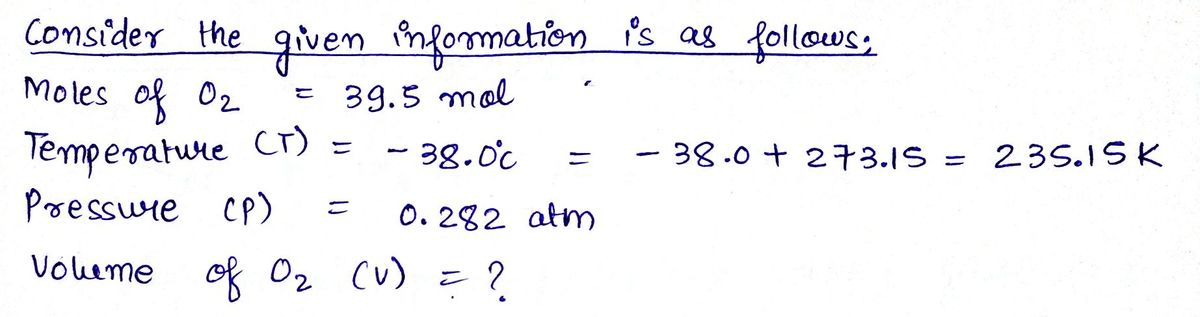 Consider the given information is as follows;
Moles of O₂ = 39.5 mol
Temperature (T) = - 38.0°C = - 38.0 + 273.15 = 235.15 K
Pressure (P) = 0.282 atm
Volume of O₂ (V) = ?